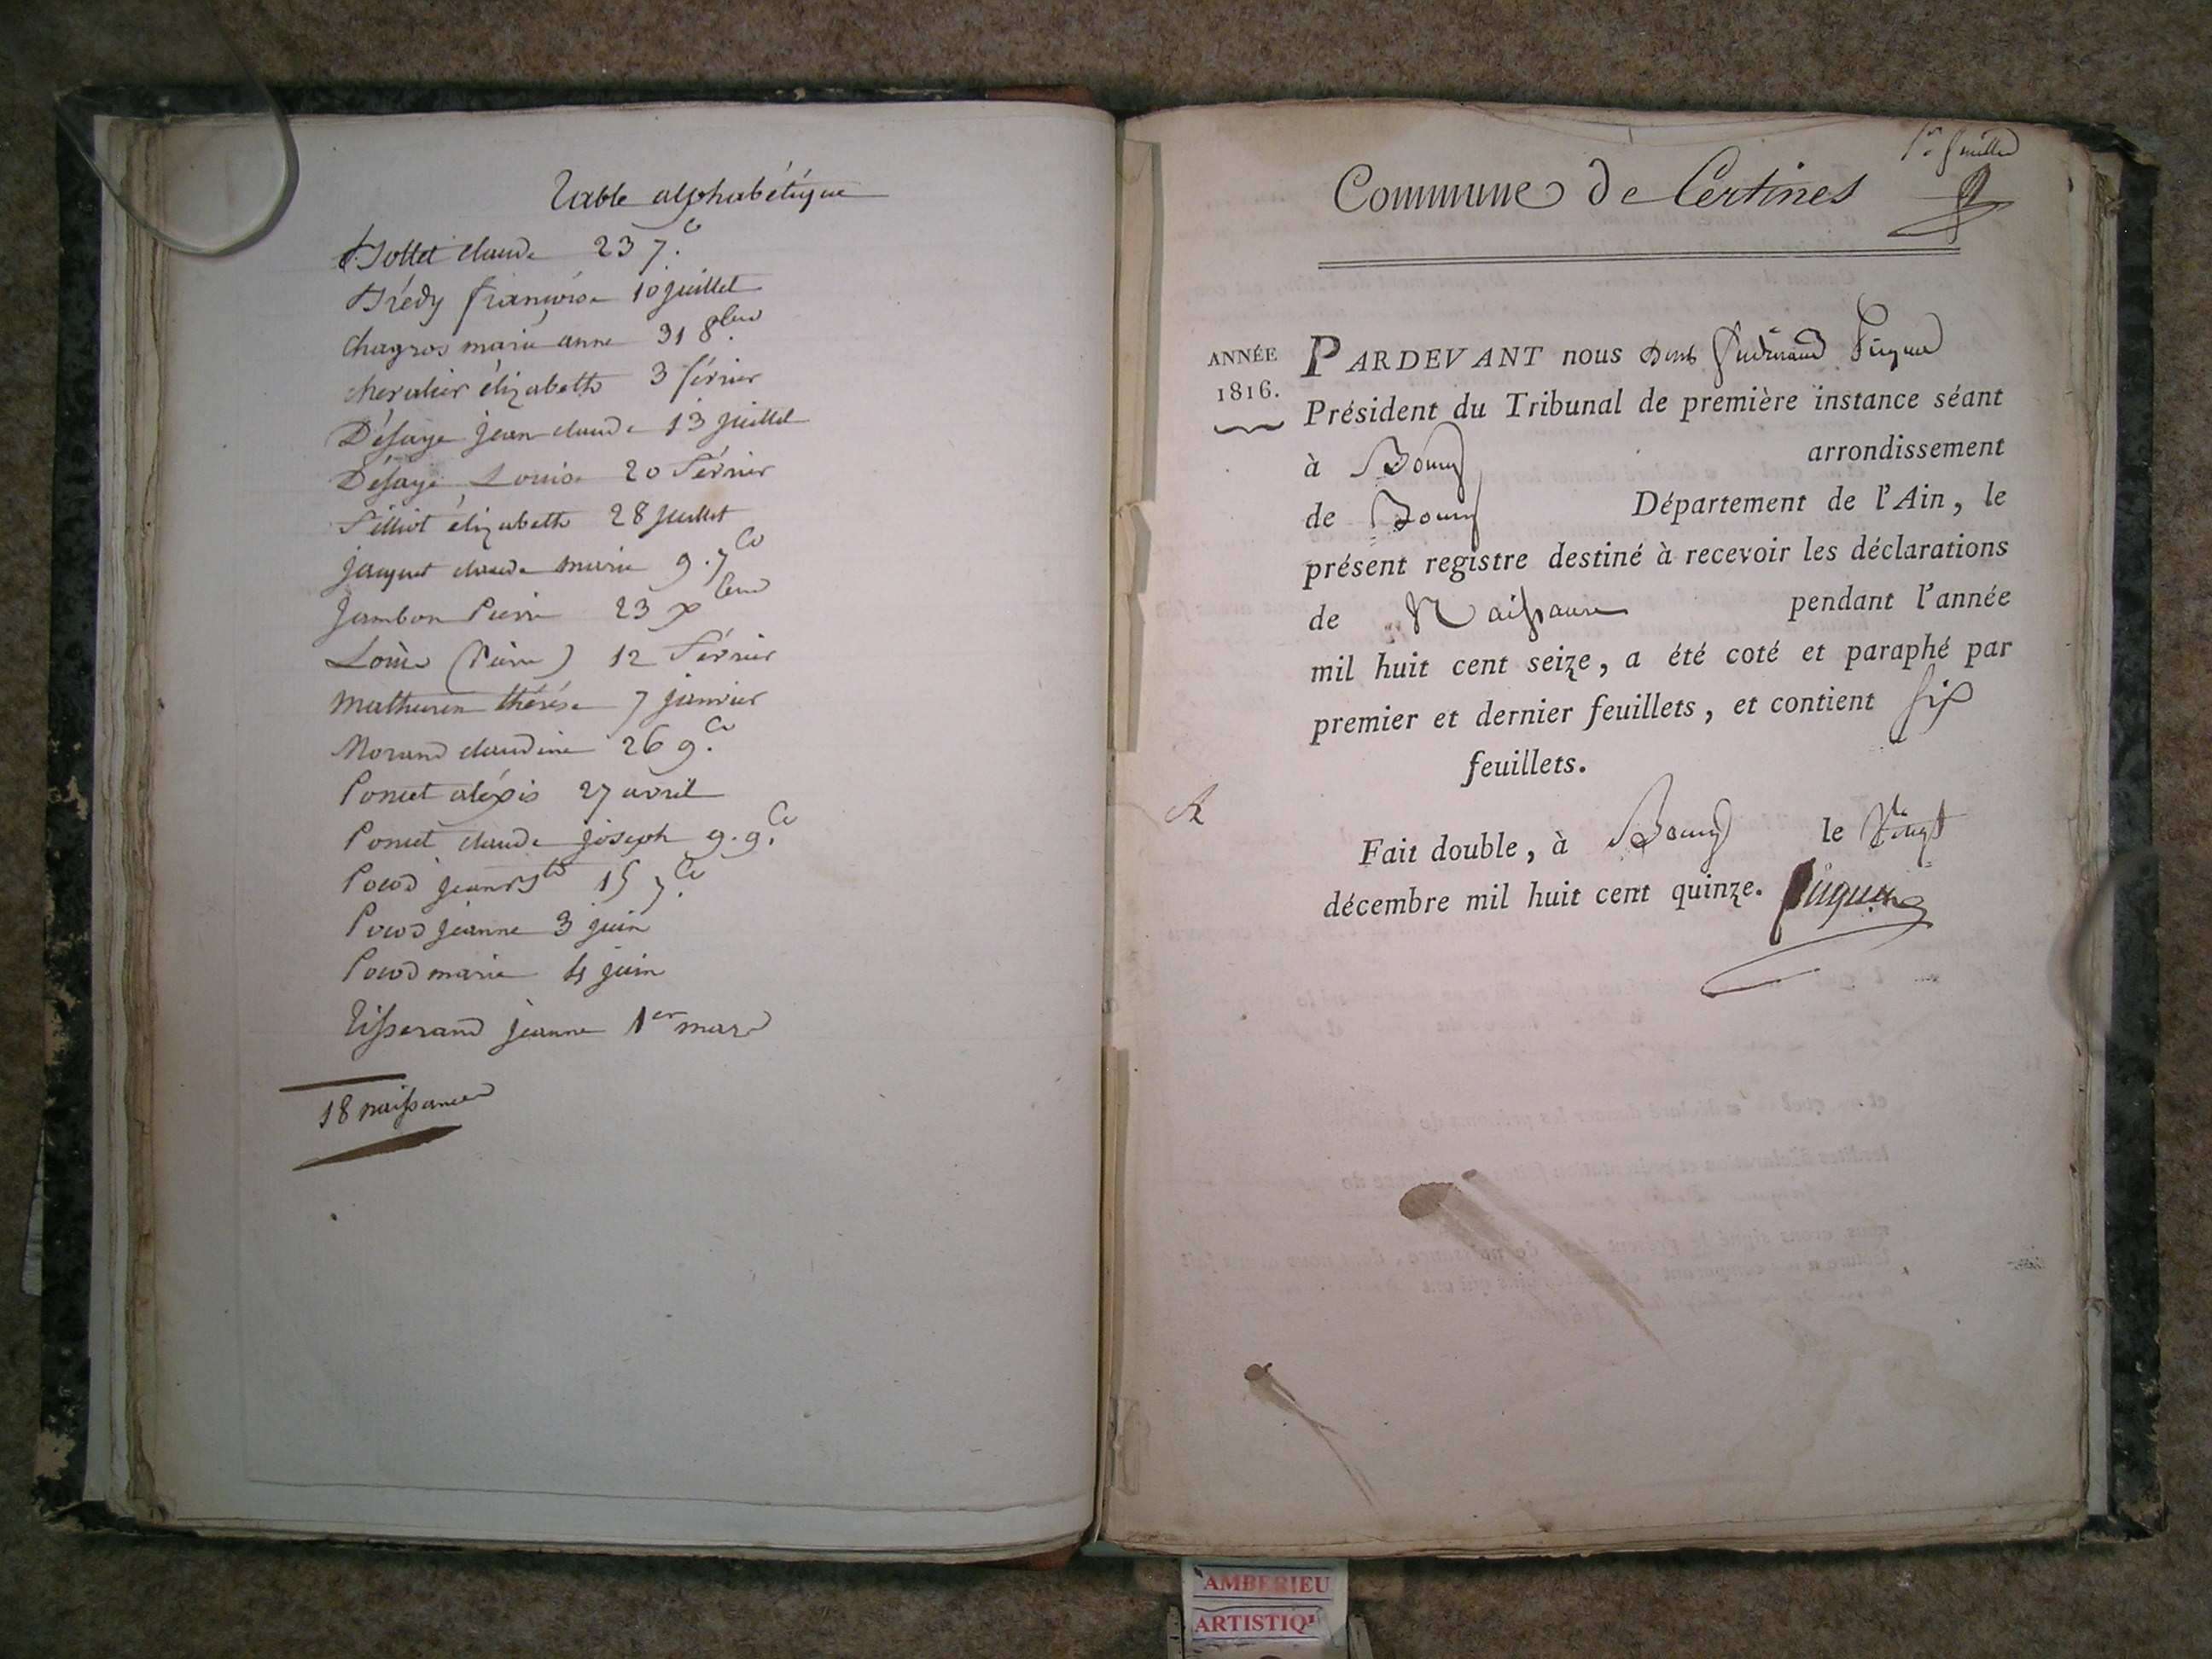 Table alphabétique
Bollet claude 23 7.e
Brédy françoise 10 juillet
Chagros marie anne 31 8bre
chevalier élizabeth 3 février
Désaye jean claude 13 juillet
Désaye Louise 20 Février
Filliot élizabeth 28 juillet
jacquet claude marie 9. 7ce
Jambon Pierre 23 xbre
Loüis (Pierre) 12 Février
Mathurin thérése 7 janvier
Morand claudine 26 9.ce
Poncet aléxis 27 avril
Poncet claude joseph 9. 9.ce
Pocod jean Bte 15 7.ce
Pocod jeanne 3 juin
Pocod marie 4 juin
Tisserand jeanne 1er mars
18 naissances
1er feuillet
Commune de Certines
ANNÉE
1816.
PARDEVANT nous Ferdinand Piquet
Président du Tribunal de première instance séant
à Bourg arrondissement
de Bourg Département de l'Ain, le
présent registre destiné à recevoir les déclarations
de Naissance pendant l'année
mil huit cent seize, a été coté et paraphé par
premier et dernier feuillets, et contient six
feuillets.
Fait double, à Bourg le vingt
décembre mil huit cent quinze.
AMBERIEU
ARTISTIQU